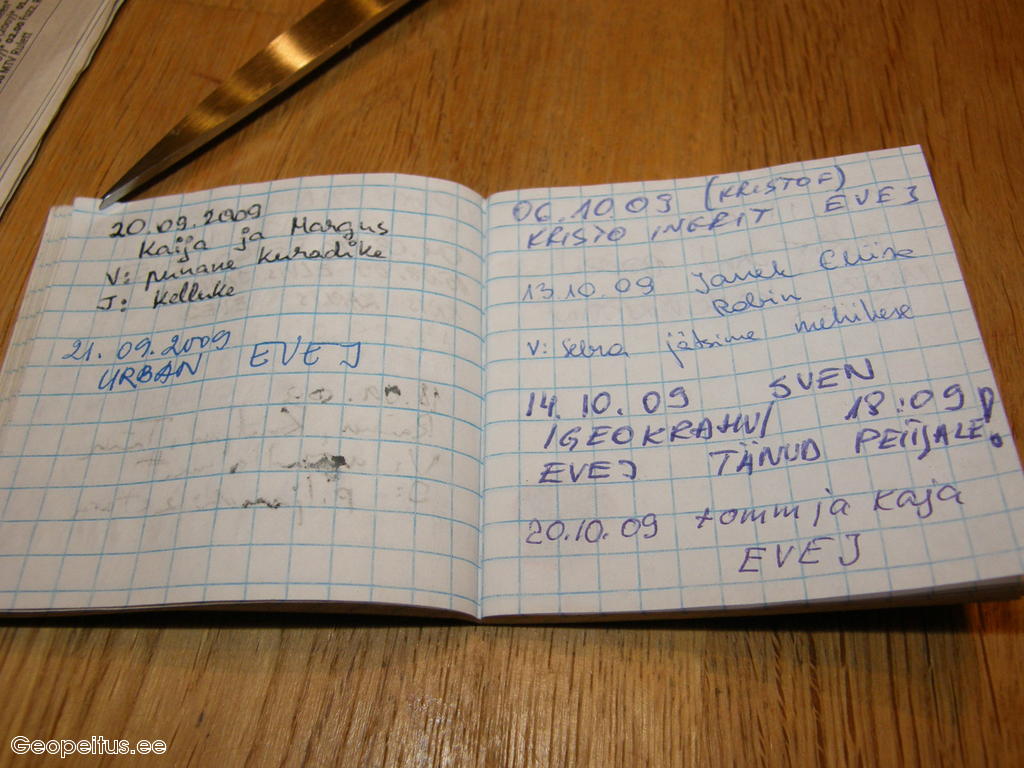 MTV Rulett
20.09.2009
Kaija ja Margus
V: punane kuradike
J: kelluke
21.09.2009
URBAN EVEJ
06.10.09 (KRISTOF)
KRISTO INGRIT EVEJ
13.10.09 Janek Eliise
Robin
V: Sebra jätsime mehikese
14.10.09 SVEN
/GEOKRAHV/ 18:09
EVEJ TÄNUD PEITJALE!
20.10.09 tomm ja Kaja
EVEJ
Geopeitus.ee